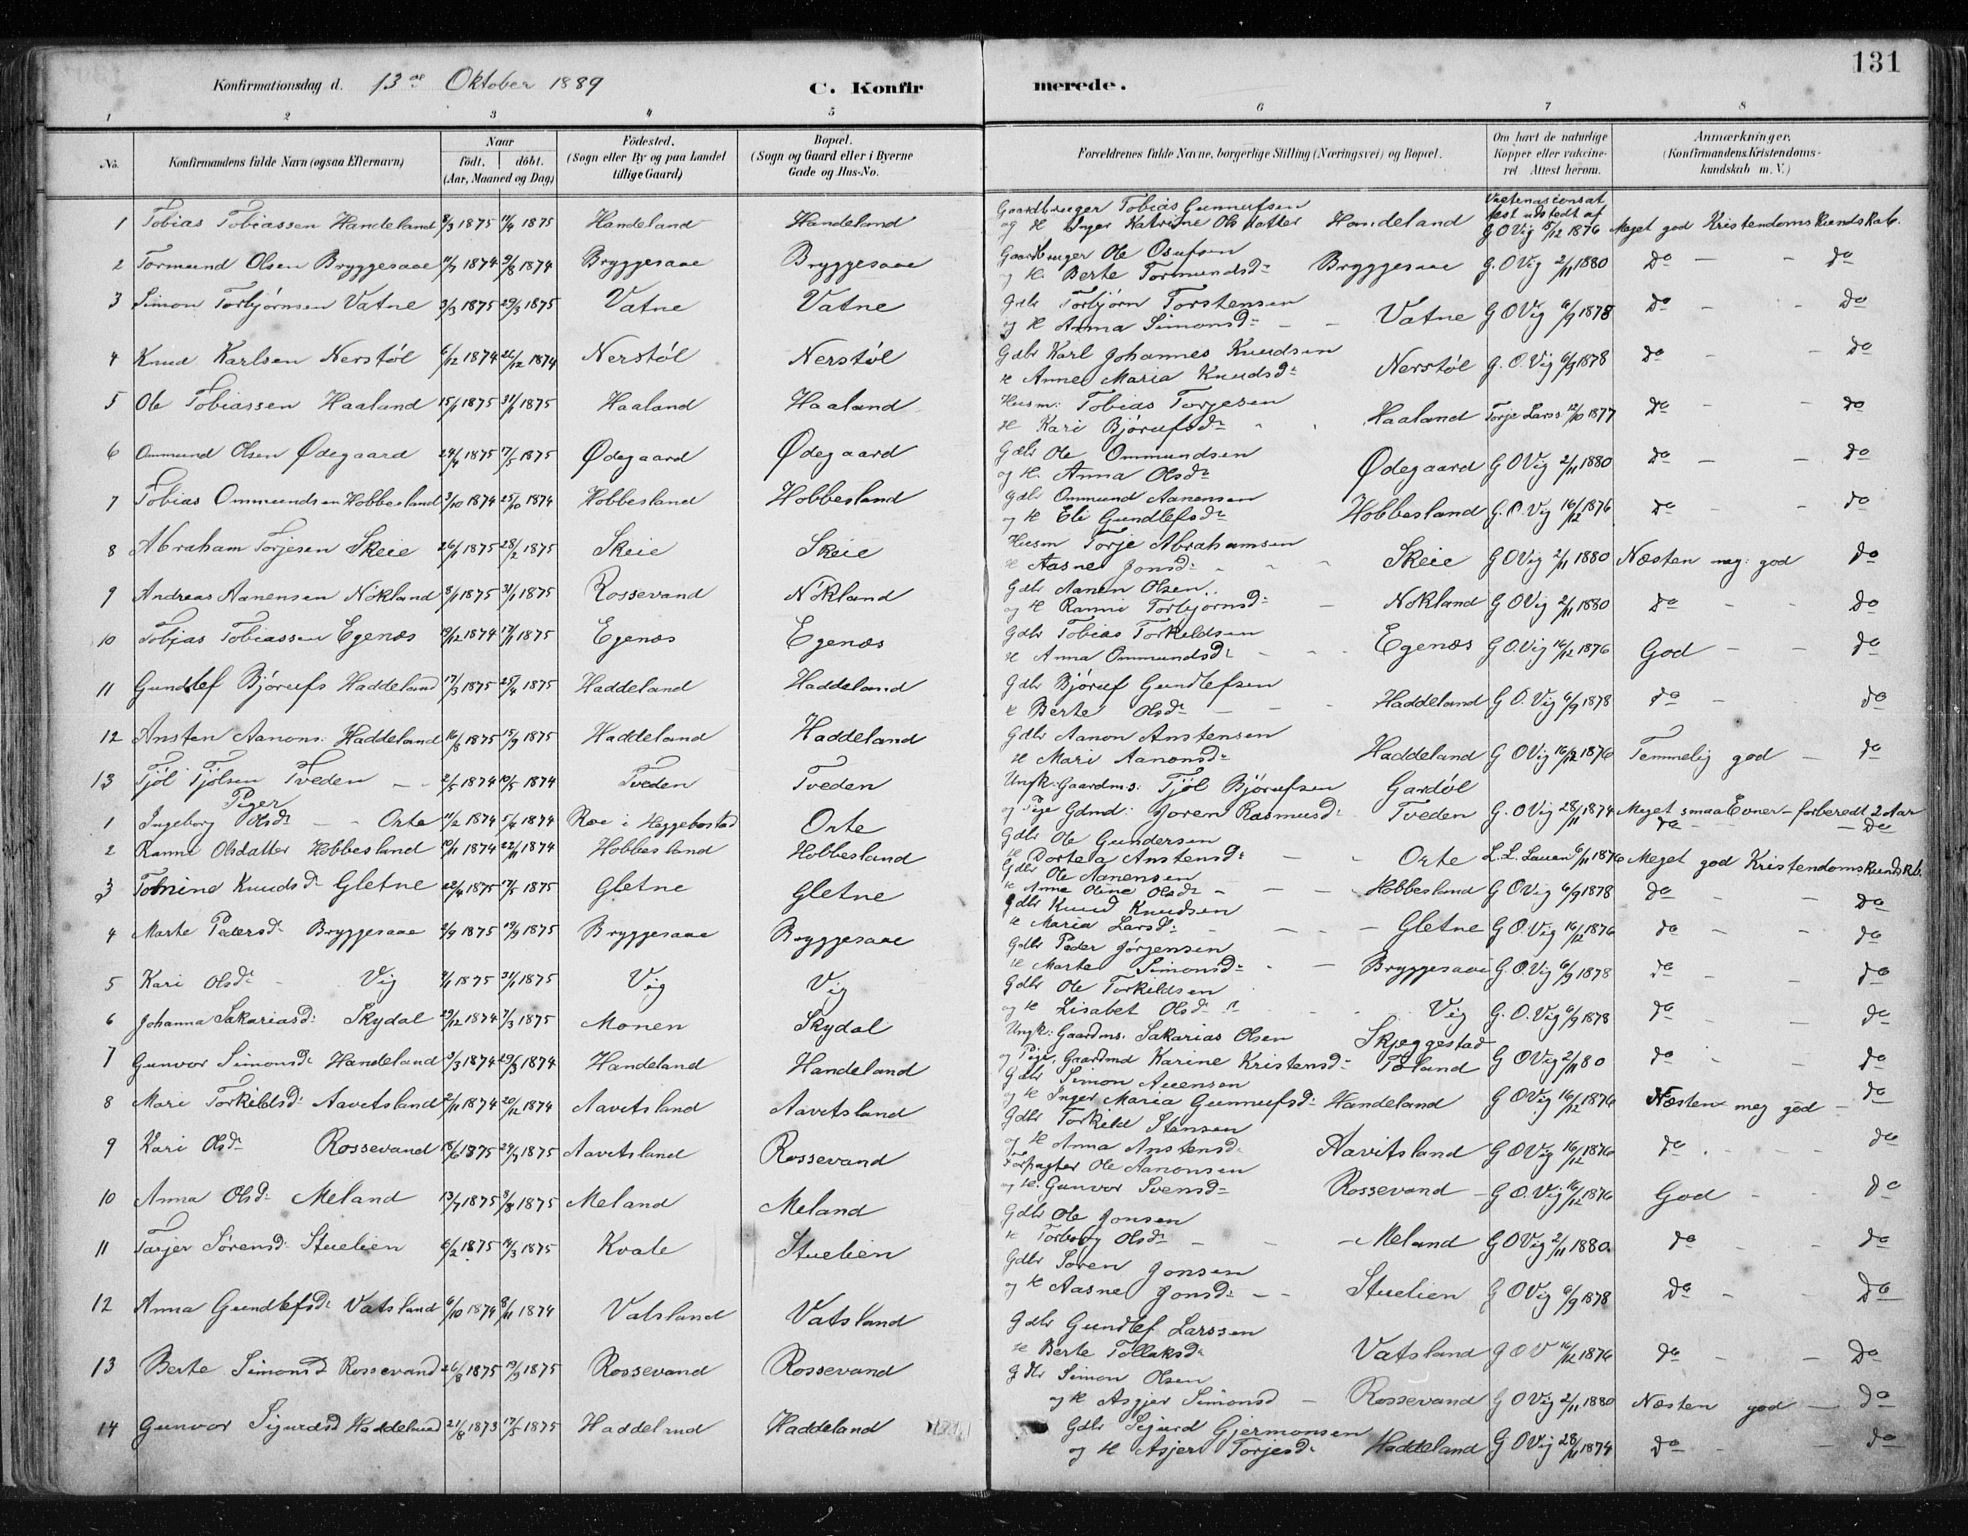 131
Konfirmationsdag d. 13de Oktober 1889 C. Konfir merede.
1 2 3 4 5 6 7 8
No. Konfirmandens fulde Navn (ogsaa Efternavn) Naar født. døbt. (Aar, Maaned og Dag) Fødested. (Sogn eller By og paa Landet tillige Gaard) Bopæl. (Sogn og Gaard eller i Byerne Gade og Hus-No. Forældrenes fulde Navne, borgerlige Stilling (Næringsvei) og Bopæl. Om havt de naturlige Kopper eller vakcineret Attest herom. Anmærkninger. (Konfirmandens Kristendomskundskab m. V.)
1 Tobias Tobiassen Handeland 8/3 1875 11/4 1875 Handeland Handeland Gaardbruger Tobias Gunnufsen og H Inger Katrine Olsdatter Handeland G O Vig 15/12 1876 Meget god Kristendomskundskab.
2 Tormund Olsen Bryggesaae 11/7 1874 9/8 1874 Bryggesaae Bryggesaae Gaardbruger Ole Osufsen og H. Berte Tormundsdr Bryggesaae G. O Vig 2/11 1880 Do - - do
3 Simon Torbjørnsen Vatne 3/3 1875 29/3 1875 Vatne Vatne Gdbr Torbjørn Torstensen og H Anna Simonsdr - - Vatne G O Vig 6/9 1878 Do - - Do
4 Knud Karlsen Nerstøl 6/12 1874 26/12 1874 Nerstøl Nerstøl Gdbr Karl Johannes Knudsen H Anne Maria Knudsdr Nerstøl G. O. Vig 6/9 1878 Do - - do
5 Ole Tobiassen Haaland 15/1 1875 31/1 1875 Haaland Haaland Husm: Tobias Torjesen H Kari Bjørufsdr Haaland Torje Larss 12/10 1877 Do - - Do
6 Ommund Olsen Ødegaard 24/4 1875 17/5 1875 Ødegaard Ødegaard Gdbr Ole Ommundsen og H. Anna Olsdr Ødegaard G O Vig 2/11 1880 Do - - do
7 Tobias Ommundsen Hobbesland 3/10 1874 25/10 1874 Hobbesland Hobbesland Gdbr Ommund Aanensen og H Eli Gundlefsdr Hobbesland G. O. Vig 16/12 1876 Do - - do
8 Abraham Torjesen Skeie 26/1 1875 28/2 1875 Skeie Skeie Husm Torje Abrahamsen H Aasne Jonsdr Skeie G O Vig 2/11 1880 Næsten meg: god do
9 Andreas Aanensen Nökland 8/1 1875 31/1 1875 Rossevand Nökland Gdbr Aanen Olsen og H Ranni Torbjørnsdr - Nökland G O Vig 2/11 1880 Do - - Do
10 Tobias Tobiassen Egenæs 19/12 1874 17/1 1875 Egenæs Egenæs Gdbr Tobias Torkeldsen H Anna Ommundsdr - - Egenæs G O Vig 16/12 1876 God - - do
11 Gundlef Bjørufs Haddeland 17/3 1875 25/4 1875 Haddeland Haddeland Gdbr Bjøruf Gundlefsen H Berte Olsdr - - - Haddeland G O. Vig 6/9 1878 do - - do
12 Ansten Aanons: Haddeland 16/8 1875 15/9 1875 Haddeland Haddeland Gdbr Aanon Anstensen H Mari Aanonsdr Haddeland G O Vig 16/12 1876 Temmelig god - do
13 Tjöl Tjölsen Tveden - - 2/5 1874 10/5 1874 Tveden Tveden Ungk: Gaardms: Tjöl Bjørufsen Gardöl og Pige Gdmd: Joren Rasmusdr Tveden G. O Vig 28/11 1874 Meget smaa Evner - forberedt 2 Aar
Piger
1 Ingeborg Olsdr - - Orte 11/2 1874 5/4 1874 Roe i Heggebostad Orte Gdbr Ole Gundersen H Dortea Anstensdr - - Orte L. L. Lauen 6/11 1876 Meget god Kristendomskundskb.
2 Ranni Olsdatter Hobbesland 10/11 1874 22/11 1874 Hobbesland Hobbesland Gdbr Ole Aanensen H Anne Oline Olsdr - - - Hobbesland G O Vig 6/9 1878 do - - Do
3 Tomine Knudsdr Gletne 22/4 1875 17/5 1875 Gletne Gletne Gdbr Knud Knudsen H Maria Larsdr - - - Gletne G O. Vig 16/12 1876 do - - do
4 Marte Pedersdr Bryggesaae 2/9 1875 19/9 1875 Bryggesaae Bryggesaae Gdbr Peder Jörgensen H Marte Simonsdr - - Bryggesaae G. O. Vig 6/9 1878 do - do
5 Kari Olsdr - Vig 2/1 1875 31/1 1875 Vig Vig Gdbr Ole Torkildsen og H Lisabet Olsdr Vig G. O. Vig 6/9 1878 do - - do
6 Johanna Sakariasdr Skydal 29/12 1874 7/3 1875 Monen Skydal Ungk: Gaardms. Sakarias Olsen Skjeggestad og Pige, Gaardmd Karine Kristensdr Töland G O Vig 2/11 80 do - - do
7 Gunvor Simonsdr Handeland 3/3 1874 29/3 1874 Handeland Handeland Gdbr Simon Auensen og H Inger Maria Gunnufsdr Handeland G O Vig 16/12 1876
8 Mari Torkildsdr Aavitsland 21/11 1874 20/12 1874 Aavitsland Aavitsland Gdbr Torkild Stensen og H Anna Anstensdr Aavitsland G O Vig 16/12 1876 Næsten meg god - do
9 Kari Olsdr Rossevand 18/6 1875 29/7 1875 Aavitsland Rossevand Forpagter Ole Aanonsen og H. Gunvor Svensdr Rossevand - G O. Vig 16/12 1876 do - - do
10 Anna Olsdr Meland 13/7 1875 8/8 1875 Meland Meland Gdbr Ole Jonsen H Torborg Olsdr - - Meland G O Vig 2/11 1880. God - - do
11 Tarjer Sørensdr Stuelien 6/2 1875 14/3 1875 Kvale Stuelien Gdbr Søren Jonsen og H Aasne Jonsdr - - Stuelien G O Vig 6/9 1878 do - - do
12 Anna Gundlefsdr Vatsland 6/10 1874 8/11 1874 Vatsland Vatsland Gdbr Gundlef Larssen H Berte Tollaksdr Vatsland G O V 16/12 1876 Do - - Do
13 Berte Simonsd Rossevand 26/8 1875 19/9 1875 Rossevand Rossevand Gdbr Simon Olsen og H Asgjer Simonsd - Rossevand G O Vig 2/11 1880 do - - Do
14 Gunvor Sigurdsd Haddeland 21/8 1873 17/5 1875 Haddeland Haddeland Gdbr Sigurd Gjermonsen og H Asjer Torjesdr Haddeland G O Vig 28/11 1874 Næsten god - do
do - - do